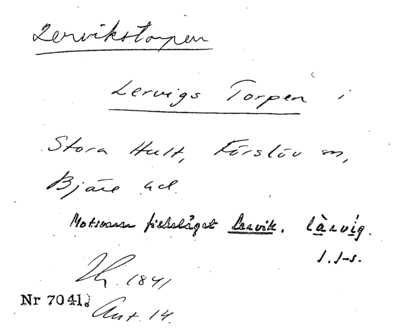 Lervikstorpen
Lervigs Torpen i
Stora Hult, Förslöv sn,
Bjäre hd.
fiskeläget Lervik. làrvíg.
1841
Nr 7041.
14.